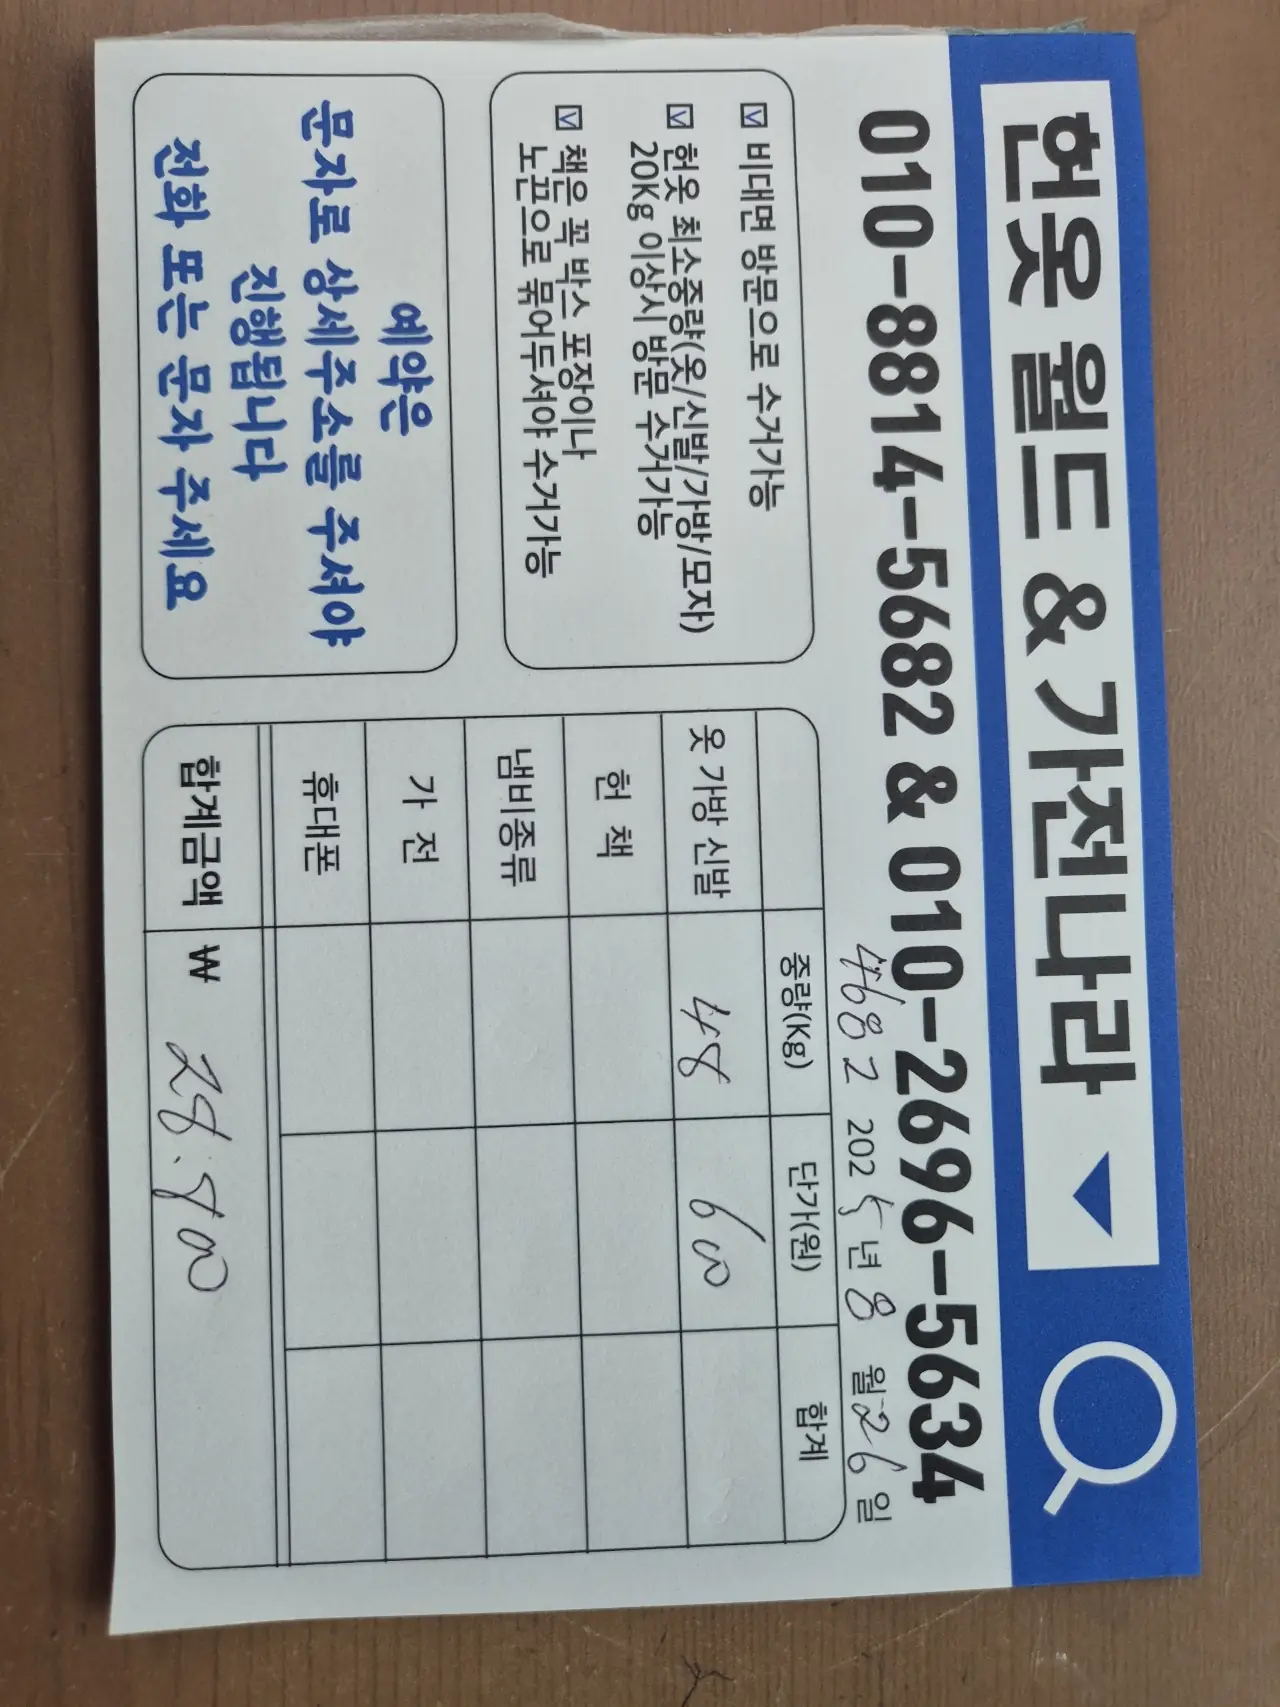 헌옷 월드 & 가전나라
010-8814-5682 & 010-2696-5634
비대면 방문으로 수거가능
헌옷 최소중량(옷/신발/가방/모자)
20Kg 이상시 방문 수거가능
책은 꼭 박스 포장이나
노끈으로 묶어두셔야 수거가능
예약은
문자로 상세주소를 주셔야
진행됩니다
전화 또는 문자 주세요
4682 2025년 8월 26일
중량(Kg) 단가(원) 합계
옷 가방 신발 48 600
헌 책
냄비종류
가 전
휴대폰
합계금액 ₩ 28.800